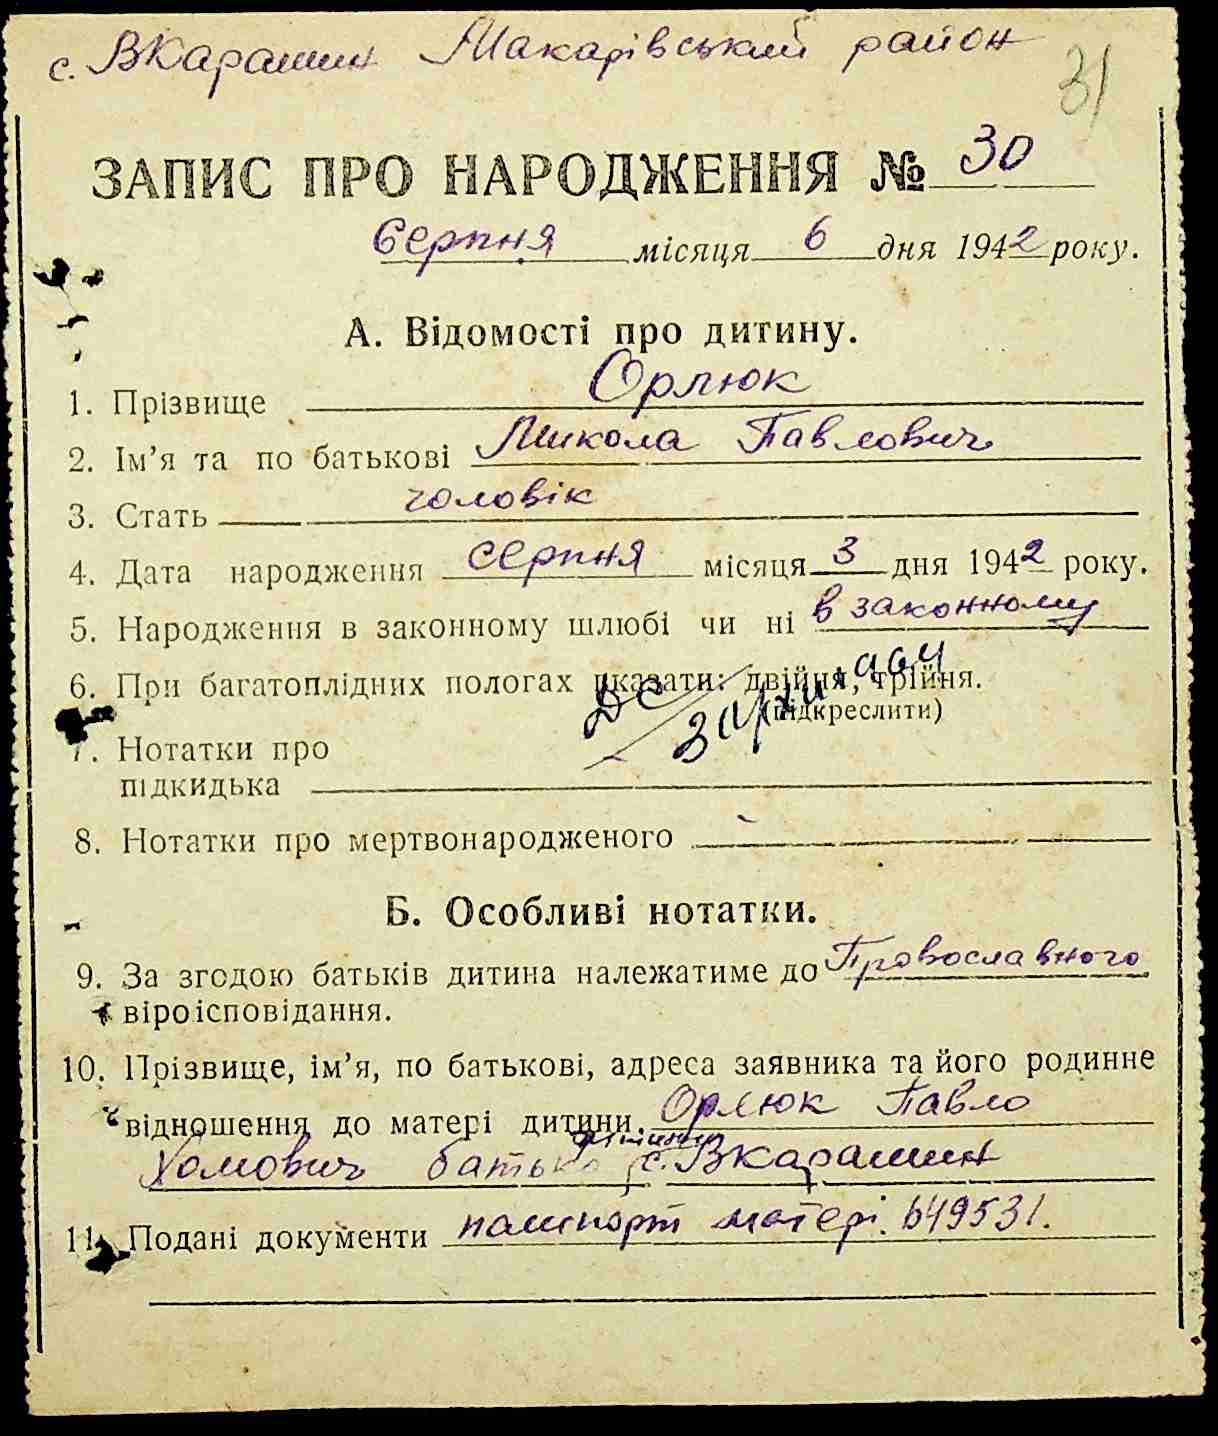 с. ВКарашин Макарівський район
31
ЗАПИС ПРО НАРОДЖЕННЯ № 30
Серпня місяця 6 дня 1942 року.
А. Відомості про дитину.
1. Прізвище Орлюк
2. Ім’я та по батькові Микола Павлович
3. Стать чоловік
4. Дата народження серпня місяця 3 дня 1942 року.
5. Народження в законному шлюбі чи ні в законному
6. При багатоплідних пологах вказати: двійня, трійня.
(підкреслити)
7. Нотатки про
підкидька
8. Нотатки про мертвонародженого
Б. Особливі нотатки.
9. За згодою батьків дитина належатиме до Провославного
віроісповідання.
10. Прізвище, ім’я, по батькові, адреса заявника та його родинне
відношення до матері дитини. Орлюк Павло
дитини
Хомович батько с. Вкарашин
11. Подані документи пашпорт матері. 649531.